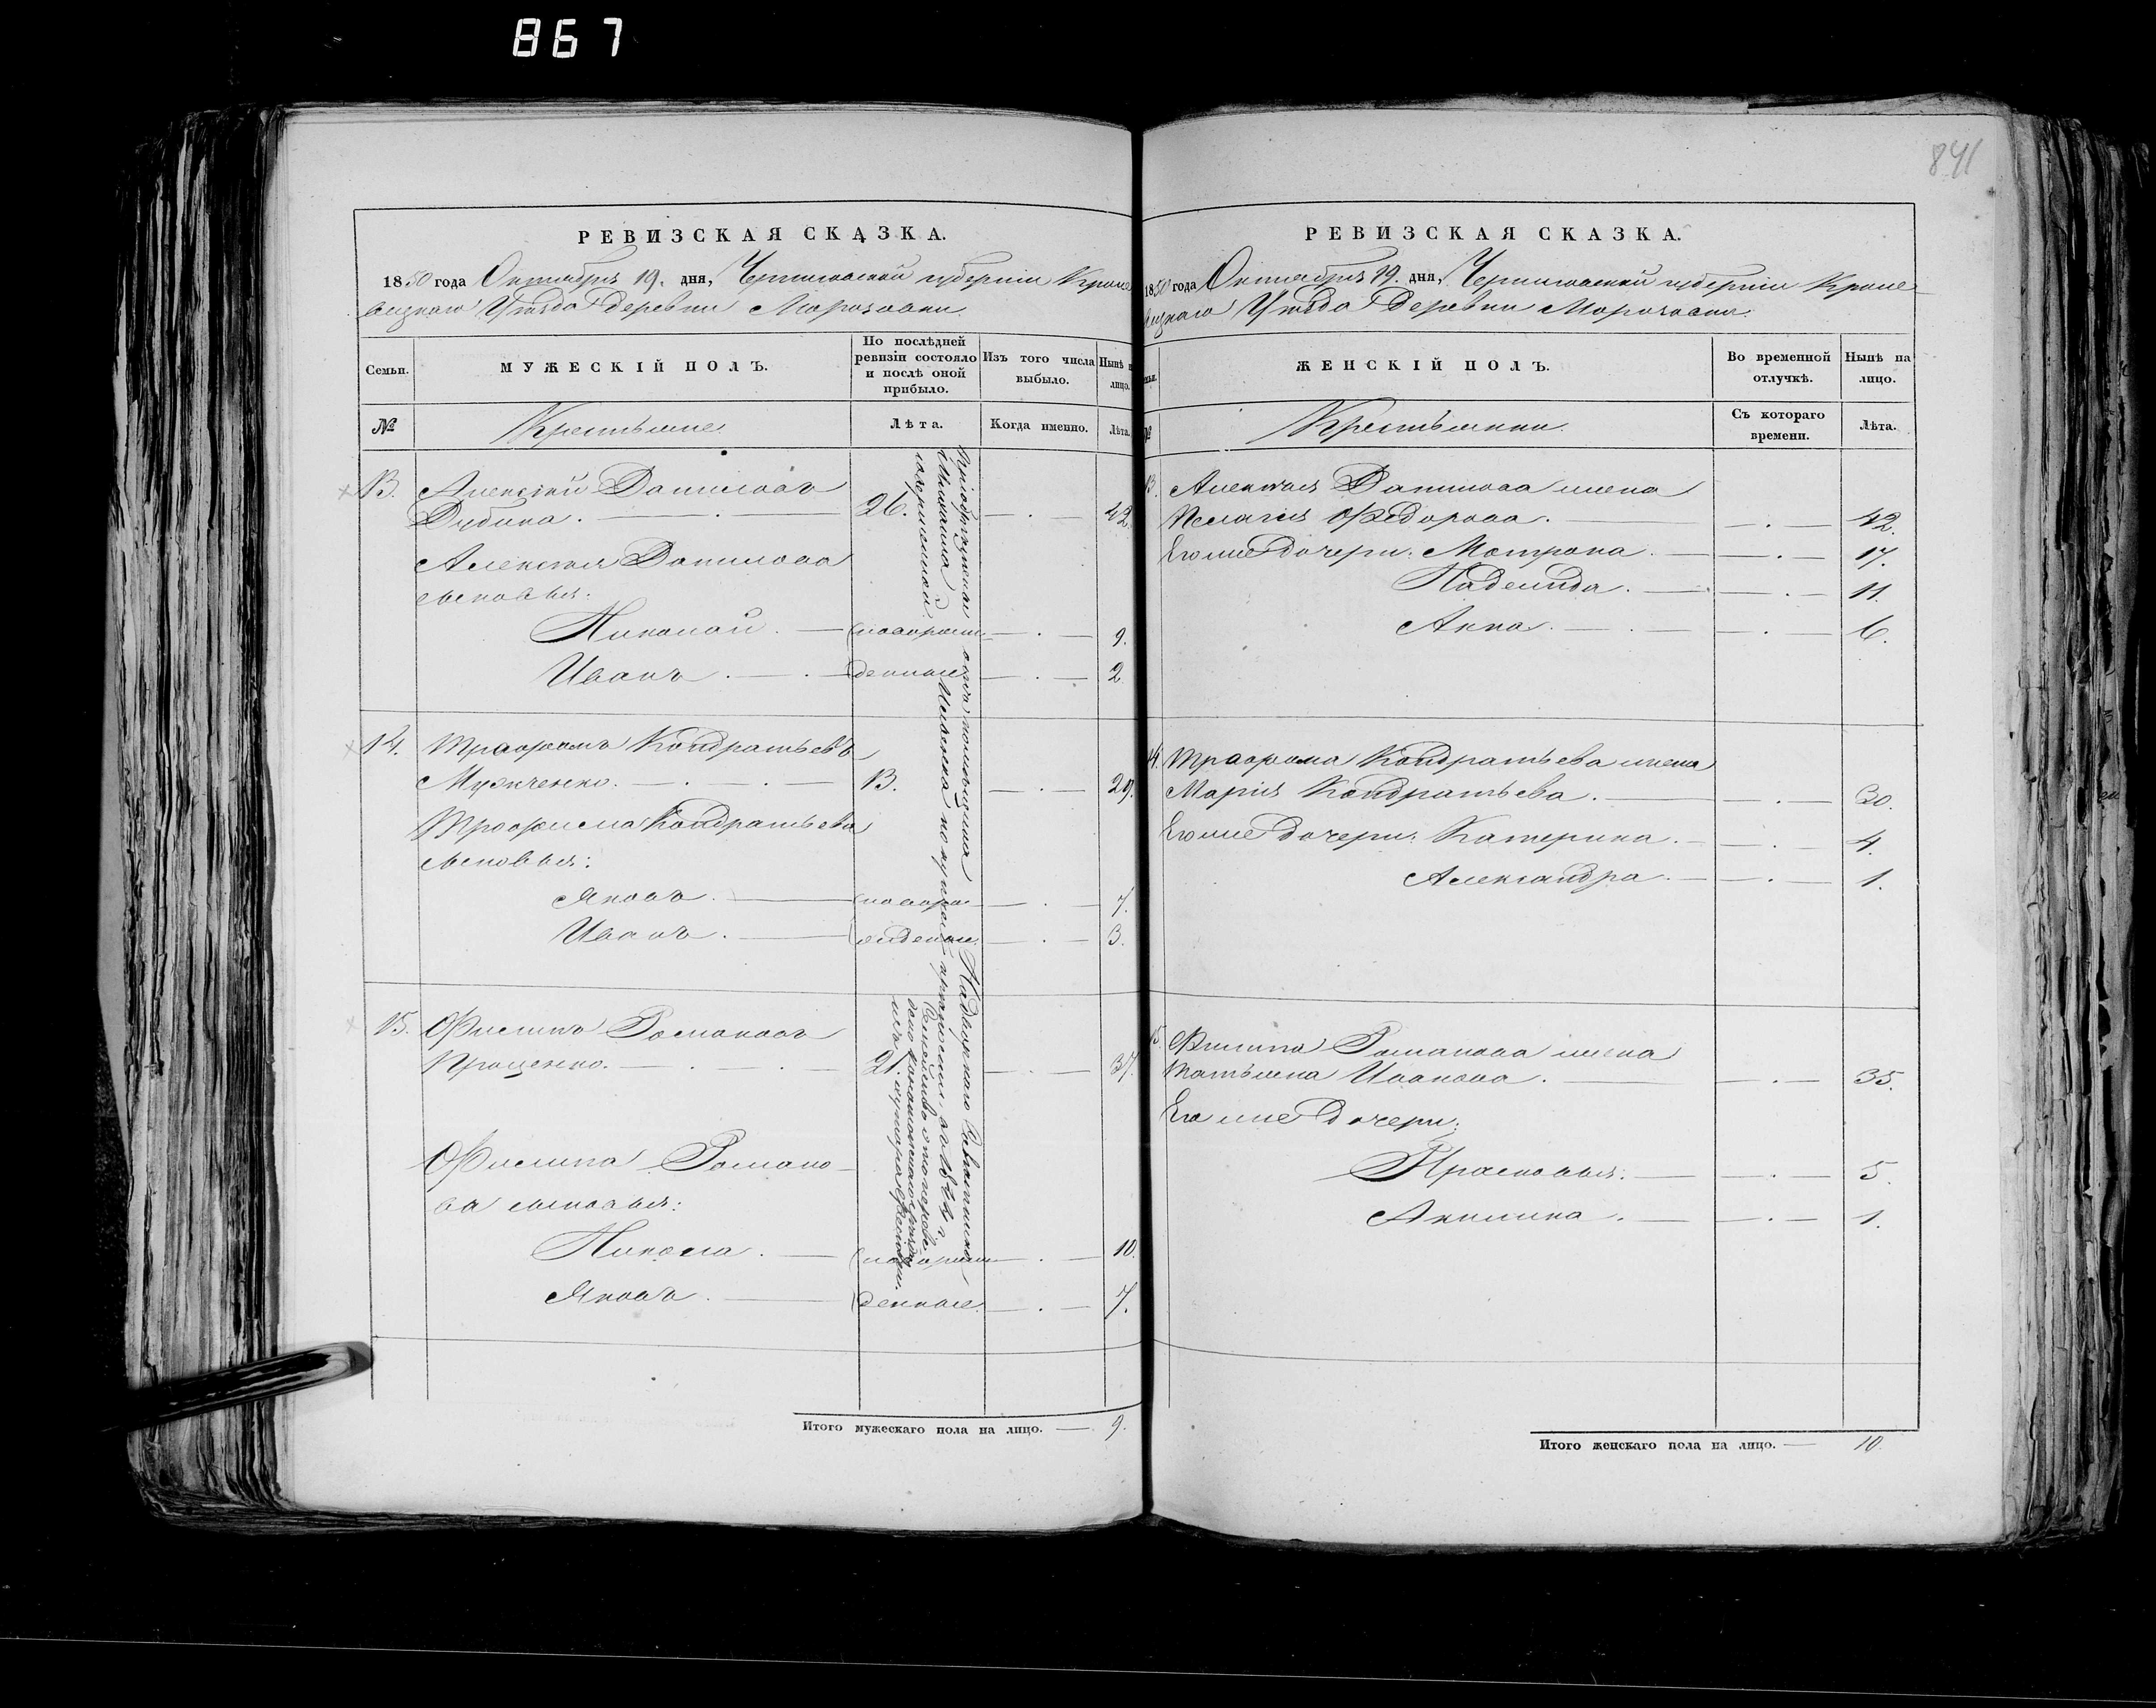 867
841
РЕВИЗСКАЯ СКАЗКА.
1850 года Октября 19. дня, Черниговской губерніи Кроле
вецкаго Уѣзда Деревни Морозовки.
Семьи. МУЖЕСКІЙ ПОЛЪ. По послѣдней ревизіи состояло и послѣ оной прибыло. Изъ того числа выбыло. Нынѣ н лицо.
№ Крестьяне. Лѣта. Когда именно. Лѣта.
13. Алексѣй Даниловъ
Дубина. 26. 42.
Алексѣя Данилова
сыновья:
Николай. новорож 9.
Иванъ. денные 2
14. Трофимъ Кондратьевъ
Мужченко. 13. 29.
Трофима Кондратьева
сыновья:
Яковъ. новоро 7.
Иванъ. жденные 3.
15. Филипъ Романовъ
Проценко. 21. 37.
Филипа Романо
ва сыновья:
Никола. новорож 10.
Яковъ. денные 7.
Итого мужескаго пола на лицо. 9.
РЕВИЗСКАЯ СКАЗКА.
1850 года Октября 19. дня, Черниговской губерніи Кроле
вецкаго Уѣзда Деревни Морозовки.
ЖЕНСКІЙ ПОЛЪ. Во временной отлучкѣ. Нынѣ на лицо.
№ Крестьянки. Съ котораго времени. Лѣта.
13. Алексѣя Данилова жена
Пелагія Федорова. 42.
Его же дочери: Матрона. 17.
Надежда. 11.
Анна. 6.
14. Трофима Кондратьева жена
Марія Кондратьева. 30.
Его же дочери: Катерина. 4.
Александра. 1.
15. Филипа Романова жена
Татьяна Иванова. 35.
Его же дочери:
Прасковья. 5.
Акилина. 1.
Итого женскаго пола на лицо. 10.